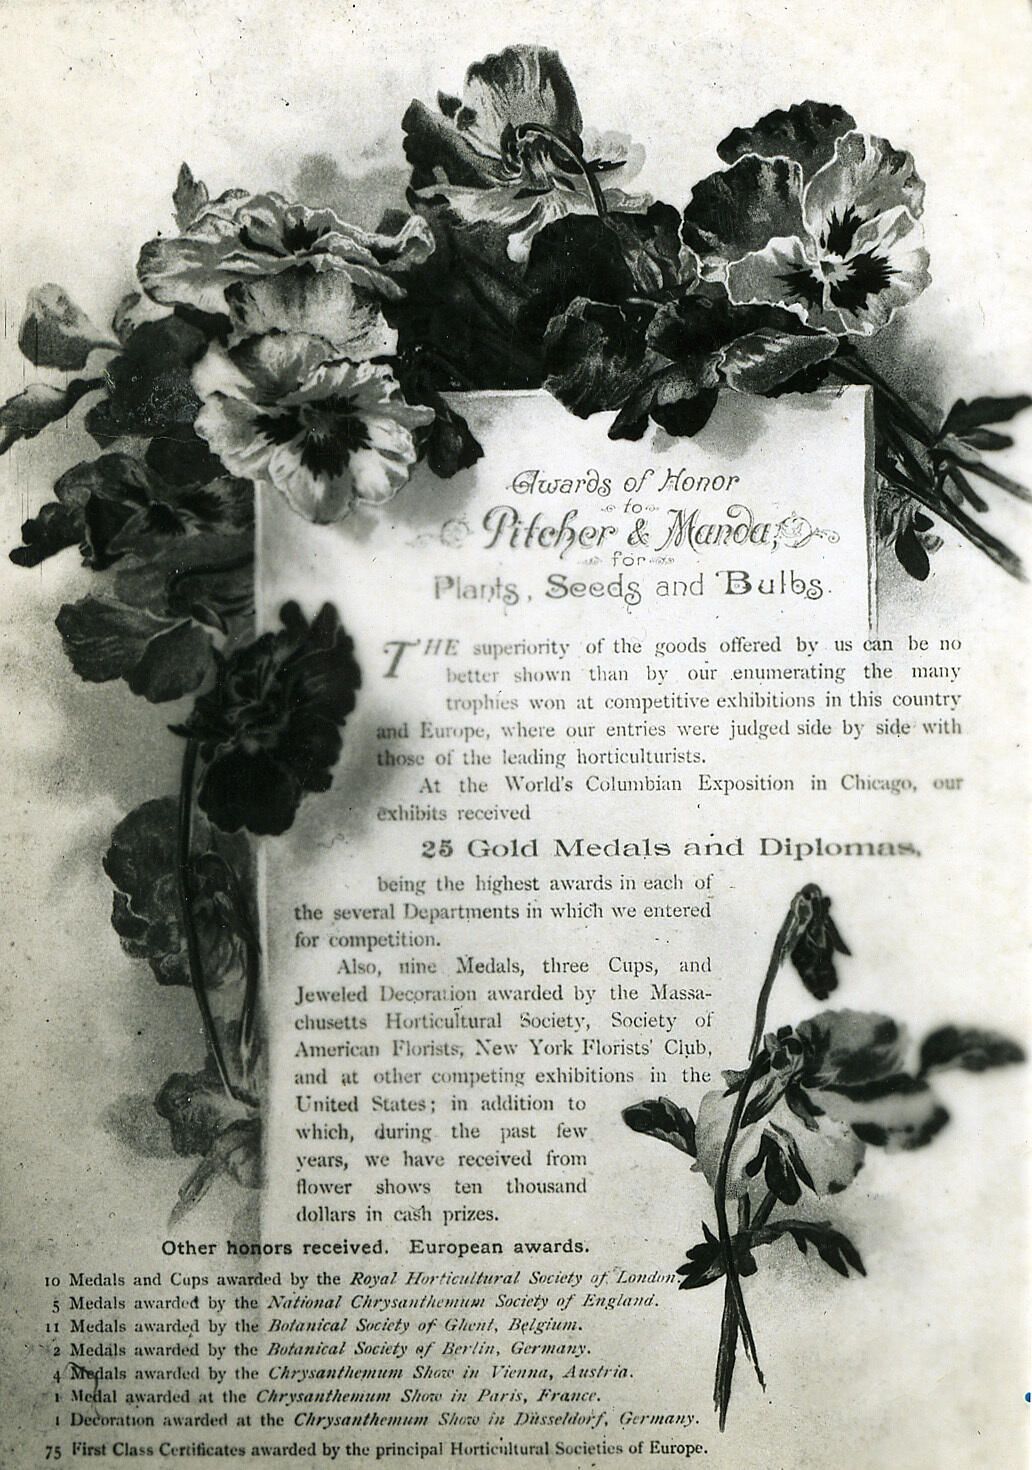 Awards of Honor
to
Pitcher & Manda,
for
Plants, Seeds and Bulbs.
THE superiority of the goods offered by us can be no
better shown than by our enumerating the many
trophies won at competitive exhibitions in this country
and Europe, where our entries were judged side by side with
those of the leading horticulturists.
At the World's Columbian Exposition in Chicago, our
exhibits received
25 Gold Medals and Diplomas,
being the highest awards in each of
the several Departments in which we entered
for competition.
Also, nine Medals, three Cups, and
Jeweled Decoration awarded by the Massa-
chusetts Horticultural Society, Society of
American Florists, New York Florists' Club,
and at other competing exhibitions in the
United States; in addition to
which, during the past few
years, we have received from
flower shows ten thousand
dollars in cash prizes.
Other honors received. European awards.
10 Medals and Cups awarded by the Royal Horticultural Society of London.
5 Medals awarded by the National Chrysanthemum Society of England.
11 Medals awarded by the Botanical Society of Ghent, Belgium.
2 Medals awarded by the Botanical Society of Berlin, Germany.
4 Medals awarded by the Chrysanthemum Show in Vienna, Austria.
1 Medal awarded at the Chrysanthemum Show in Paris, France.
1 Decoration awarded at the Chrysanthemum Show in Düsseldorf, Germany.
75 First Class Certificates awarded by the principal Horticultural Societies of Europe.